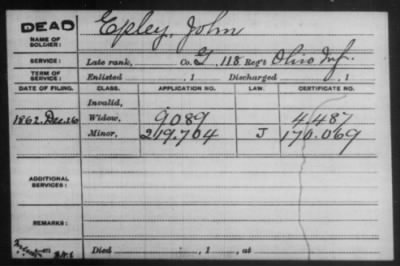 DEAD
NAME OF SOLDIER: Epley, John
SERVICE: Late rank, Co. G, 118 Reg't Ohio Inf.
TERM OF SERVICE: Enlisted , 1 Discharged , 1
DATE OF FILING. CLASS. APPLICATION NO. LAW. CERTIFICATE NO.
Invalid,
1862. Dec. 16 Widow, 9089 4,487
Minor, 219.704 J 170.069
ADDITIONAL SERVICES:
REMARKS:
Died , 1 , at